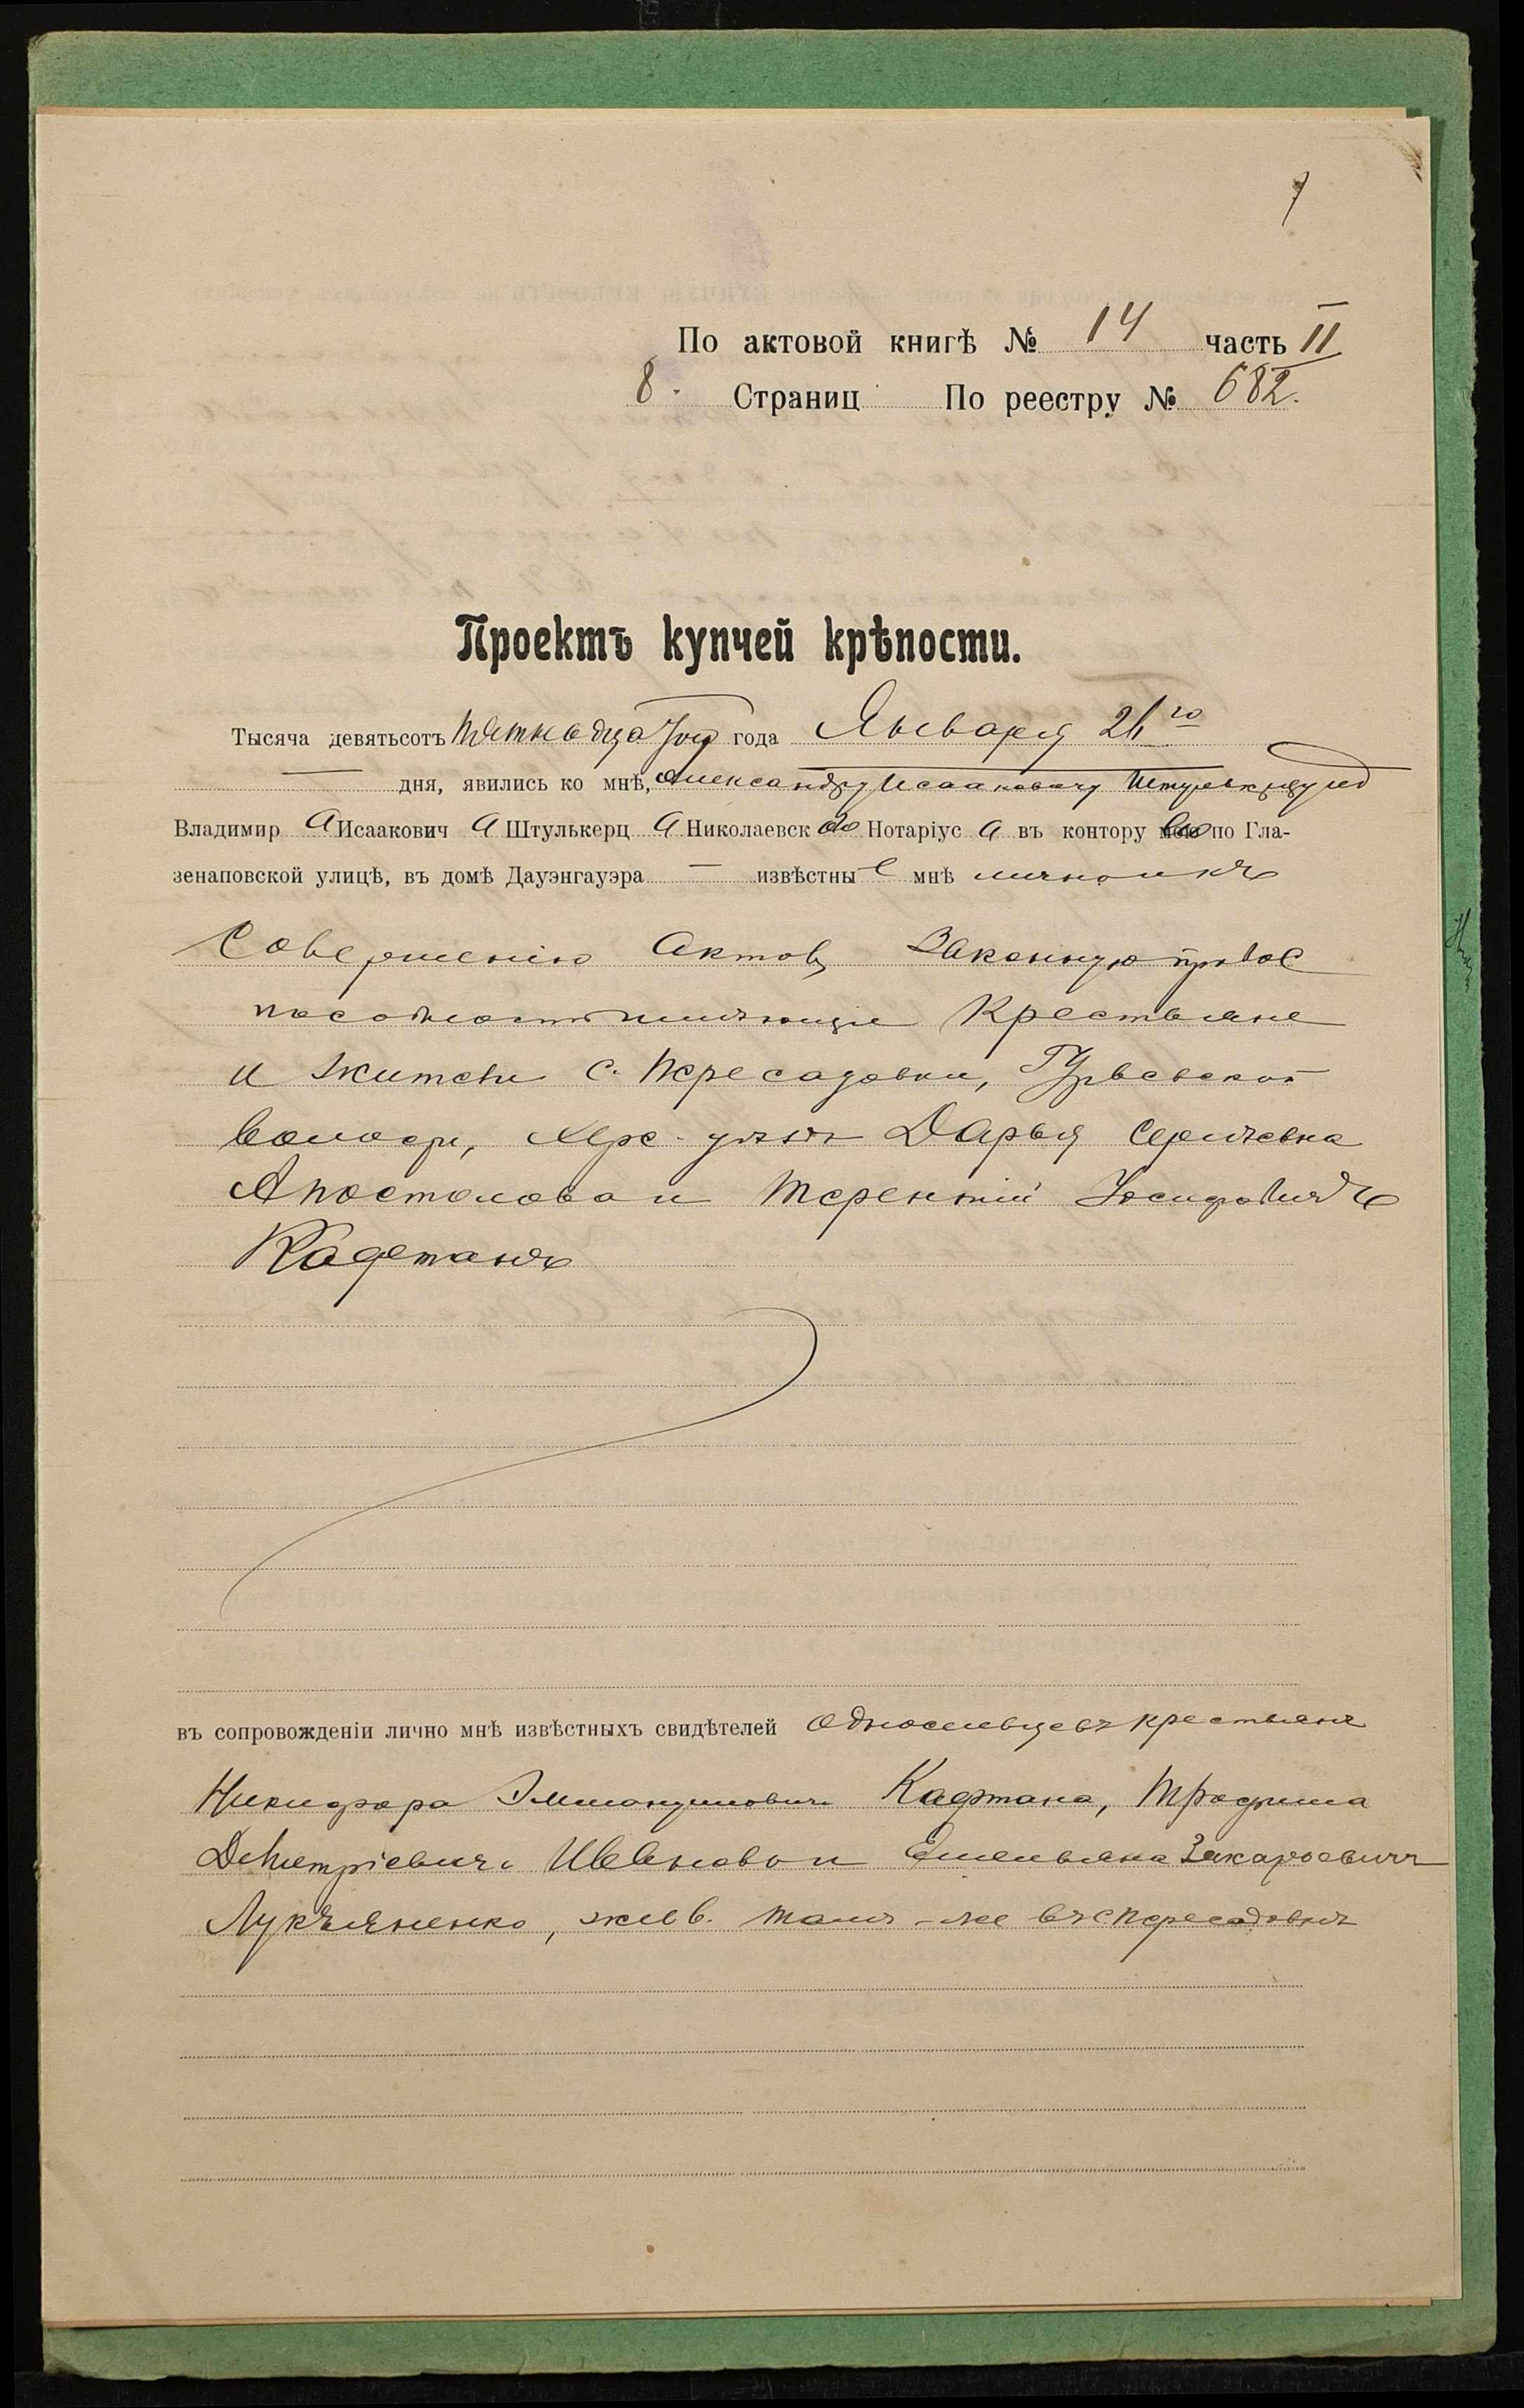 1
По актовой книгѣ № 14 часть II
8. Страниц По реестру № 682.
Проектъ купчей крѣпости.
Тысяча девятьсотъ пятнадцатого года Января 26го
дня, явились ко мнѣ, Александру Исааковичу
Владимир а Исаакович а Штулькерц а Николаевск аго Нотаріус а въ контору его по Гла-
зенаповской улицѣ, въ домѣ Дауэнгауэра — извѣстны е мнѣ лично и къ
совершенію актовъ законную правос
пособность имѣющіе крестьяне
и жители с. Пересадовки, Гурьевской
волости, Херс. уѣзда Дарья Сергѣевна
Апостолова и Терентій Іосифовичъ
Кафтанъ
въ сопровожденіи лично мнѣ извѣстныхъ свидѣтелей односельцевъ крестьянъ
Никифора Кафтана, Трофима
Дмитріевича Иванова и Емельяна Захаровича
Лукьяненко, жив. тамъ-же въ с. Пересадовкѣ